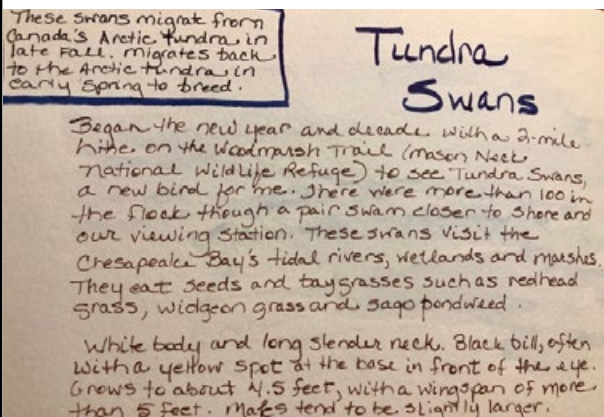 These swans migrate from
Canada's Arctic tundra in
late Fall. Migrates back
to the Arctic tundra in
early spring to breed.
Tundra
Swans
Began the new year and decade with a 2-mile
hike on the Woodmarsh Trail (Mason Neck
National Wildlife Refuge) to see Tundra Swans,
a new bird for me. There were more than 100 in
the flock though a pair swam closer to shore and
our viewing station. These swans visit the
Chesapeake Bay's tidal rivers, wetlands and marshes.
They eat seeds and baygrasses such as redhead
grass, widgeon grass and sago pondweed.
White body and long slender neck. Black bill, often
with a yellow spot at the base in front of the eye.
Grows to about 4.5 feet, with a wingspan of more
than 5 feet. Males tend to be slightly larger.